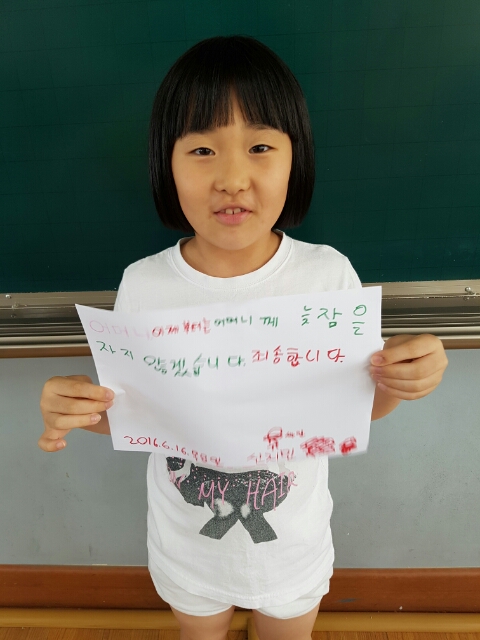 어머니 이제부터는 어머니 께 늦잠을
자지 않겠습니다. 죄송합니다.
2016.6.16.
MY HAIR